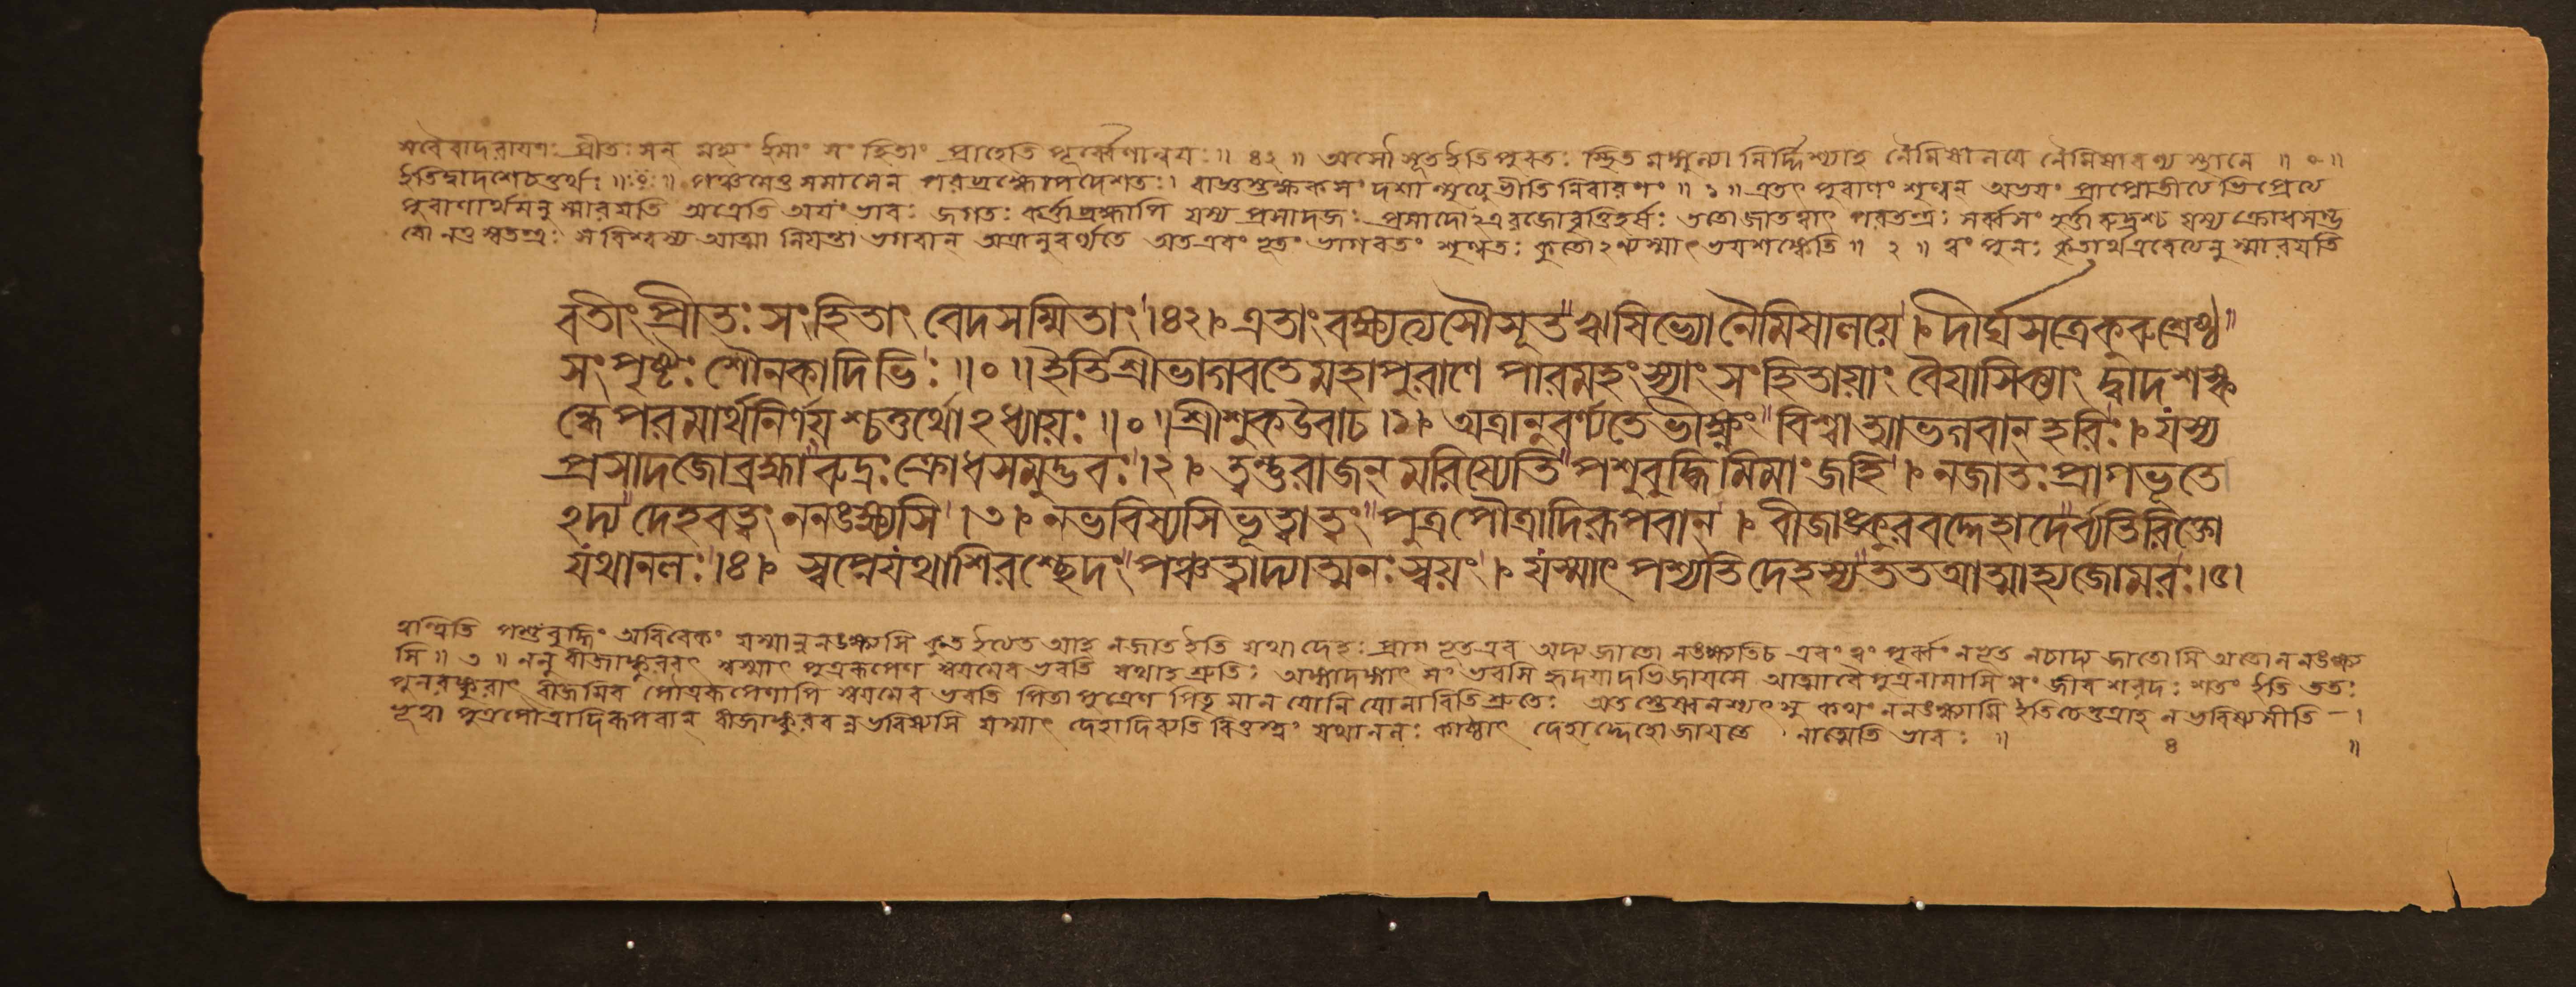 সবৈবাদরায়ণঃ প্রীতঃ সন্ মহ্যং ইমাং সংহিতাং প্রাহেতি পূর্ব্বেণান্বয়ঃ ॥ ৪২ ॥ অসৌ সূত ইতি পুরতঃ স্থিত নির্দ্দিশ্যাহ নৈমিষালয়ে নৈমিষারণ্য স্থানে ॥ ০ ॥
ইতিদ্বাদশেচতুর্থঃ ॥ ০ ॥ পঞ্চমেতু সমাসেন পরব্রহ্মোপদেশতঃ। রাজ্ঞস্তক্ষকসংদংশান্মৃত্যুভীতিনিবারণং ॥ ১ ॥ এতৎ পুরাণং শৃণ্বন্ অভয়ং প্রাপ্নোতীত্যেভিপ্রেত্য
পুরাণার্থমনুস্মারয়তি অত্রেতি অয়ং ভাবঃ জগতঃ কর্ত্তাব্রহ্মাপি যস্য প্রসাদজঃ প্রসাদোঽত্ররজোবৃত্তির্হর্ষঃ ততোজাতত্বাৎ পরতন্ত্রঃ সর্ব্বসংহর্ত্তারুদ্রশ্চ যস্য ক্রোধসমুদ্ভ
বো নতু স্বতন্ত্রঃ সবিশ্বস্য আত্মা নিয়ন্তা ভগবান্ অত্রানুবর্ণ্যতে অতএবং ভূতং ভাগবতং শৃণ্বতঃ কুতোঽন্যস্মাৎ ভয়শঙ্কেতি ॥ ২ ॥ ত্বং পুনঃ কৃতার্থএবেত্যনুস্মারয়তি
বতীং প্রীতঃ সংহিতাং বেদসম্মিতাং ।৪২। এতাং বক্ষ্যত্যসৌসূত ঋষিভ্যোনৈমিষালয়ে । দীর্ঘসত্রেকুরুশ্রেষ্ঠ
সংপৃষ্টঃ শৌনকাদিভিঃ ॥ ০ ॥ ইতিশ্রীভাগবতেমহাপুরাণে পারমহংস্যাং সংহিতায়াং বৈয়াসিক্যাং দ্বাদশস্ক
ন্ধেপরমার্থনির্ণয়শ্চতুর্থোঽধ্যায়ঃ ॥ ০ ॥ শ্রীশুকউবাচ ।১। অত্রানুবর্ণ্যতেভীক্ষ্ণং বিশ্বাত্মাভগবান্ হরিঃ । যস্য
প্রসাদজোব্রহ্মা রুদ্রঃক্রোধসমুদ্ভবঃ ।২। ত্বন্তুরাজন্ মরিষ্যেতি পশুবুদ্ধিমিমাং জহি । নজাতঃপ্রাগভূতে
ঽদ্য দেহবত্ত্বং ননঙ্ক্ষ্যসি ।৩। নভবিষ্যসিভূত্বাত্বং পুত্রপৌত্রাদিরূপবান্ । বীজাঙ্কুরবদ্দেহাদের্ব্যতিরিক্তো
যথানলঃ ।৪। স্বপ্নেযথাশিরশ্ছেদং পঞ্চত্বাদ্যাত্মনঃস্বয়ং । যস্মাৎ পশ্যতিদেহস্য ততআত্মাহ্যজোমরঃ ।৫।
ত্বন্ত্বিতি পশুবুদ্ধিং অবিবেকং যস্মান্ননঙ্ক্ষ্যসি কুত ইত্যত আহ নজাতইতি যথা দেহঃ প্রাগ ভূতএব অদ্য জাতো নঙ্ক্ষ্যতিচ এবং ত্বং পূর্ব্বং নভূত নচাদ্য জাতোসি অতোন নঙ্ক্ষ্য
সি ॥ ৩ ॥ ননু বীজাঙ্কুরবৎ স্বস্মাৎ পুত্ররূপেণ স্বয়মেব ভবতি যথাহশ্রুতিঃ অঙ্গাদঙ্গাৎ সং ভবসি হৃদয়াদভিজায়সে আত্মাবৈ পুত্রনামাসি সং জীব শরদঃ শতং ইতি ততঃ
পুনরঙ্কুরাৎ বীজমিব পৌত্ররূপেণাপি স্বয়মেব ভবতি পিতা পুত্রেণ পিতৃমান যোনি যোনাবিতিশ্রুতেঃ কথং ননঙ্ক্ষ্যামি ইতিচেত্তত্রাহ ন ভবিষ্যসীতি —।
ভূত্বা পুত্রপৌত্রাদিরূপবান্ বীজাঙ্কুরবন্নভবিষ্যসি যস্মাৎ দেহাদিব্যতিরিক্তস্ত্বং যথানলঃ কাষ্ঠাৎ দেহাদ্দেহোজায়তে নাত্মেতি ভাবঃ ॥ ৪ ॥